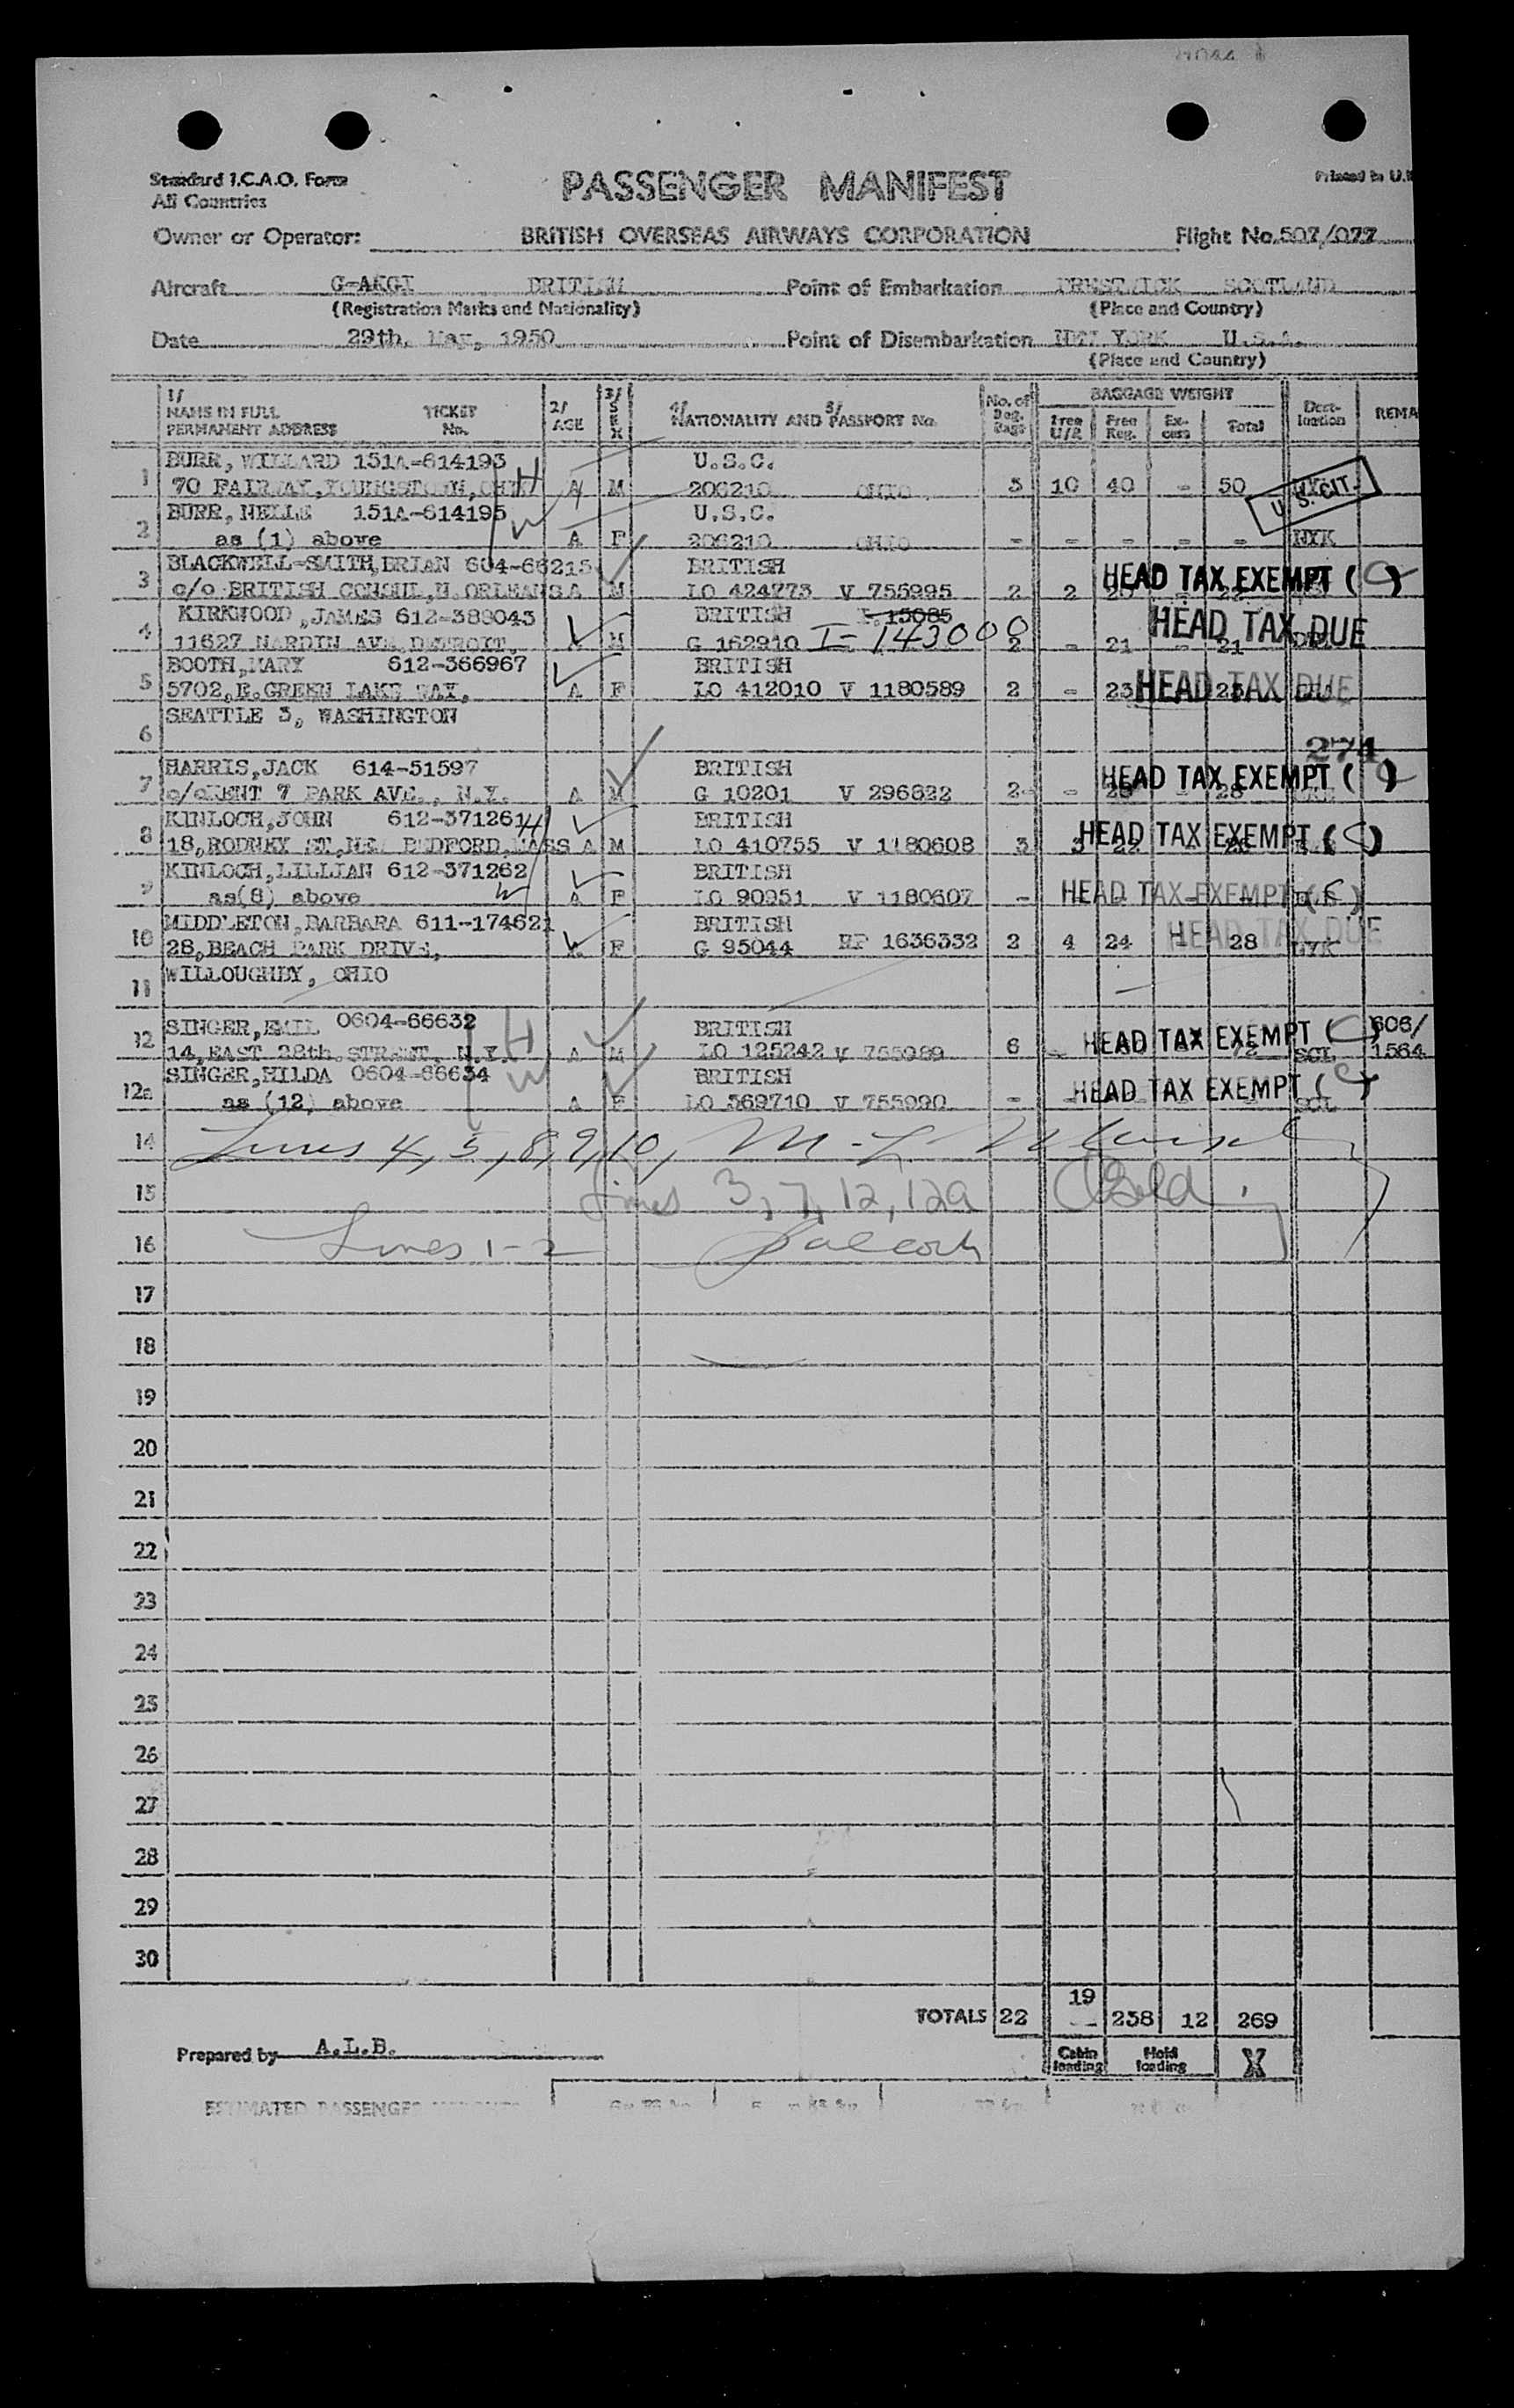 Standard I.C.A.O. Form
All Countries
PASSENGER MANIFEST
Printed in U.
Owner or Operator: BRITISH OVERSEAS AIRWAYS CORPORATION Flight No. 507/077
Aircraft G-AKGI BRITISH Point of Embarkation PRESTWICK SCOTLAND
(Registration Marks and Nationality) (Place and Country)
Date 29th. May, 1950 Point of Disembarkation NEW YORK U.S.A.
(Place and Country)
1/ NAME IN FULL PERMANENT ADDRESS TICKET No. 2/ AGE 3/ SEX 4/ NATIONALITY AND 5/ PASSPORT No. No. of Reg. Bags BAGGAGE WEIGHT Free U/R Free Reg. Ex-cess Total Dest-ination REMA
1 BURR, WILLARD 151A-614193 U.S.C.
70 FAIRWAY, YOUNGSTOWN, OHIO H A M 206210 OHIO 3 10 40 - 50 U.S. CIT.
2 BURR, NELLE 151A-614195 U.S.C.
as (1) above W A F 206210 OHIO - - - - - NYK
3 BLACKWELL-SMITH, BRIAN 604-66215 BRITISH
c/o BRITISH CONSUL, N. ORLEANS A M LO 424773 V 755995 2 2 HEAD TAX EXEMPT (C)
4 KIRKWOOD, JAMES 612-388043 BRITISH 15085
11627 NARDIN AVE. DETROIT. M G 162910 I-143000 2 - 21 - 21 HEAD TAX DUE
5 BOOTH, MARY 612-366967 BRITISH
5702, E. GREEN LAKE WAY, A F LO 412010 V 1180589 2 - 23 HEAD TAX DUE
SEATTLE 5, WASHINGTON
6
274
7 HARRIS, JACK 614-51597 BRITISH
c/o KENT 7 PARK AVE., N.Y. A M G 10201 V 296822 2 - 28 HEAD TAX EXEMPT (C)
8 KINLOCH, JOHN 612-371261 H BRITISH
18, RODNEY ST, NEW BEDFORD, MASS A M LO 410755 V 1180608 3 3 HEAD TAX EXEMPT (C)
9 KINLOCH, LILLIAN 612-371262 BRITISH
as (8) above W A F LO 90951 V 1180607 - HEAD TAX EXEMPT (C)
10 MIDDLETON, BARBARA 611-174621 BRITISH
28, BEACH PARK DRIVE, F G 95044 RP 1636332 2 4 24 - 28 NYK HEAD TAX DUE
11 WILLOUGHBY, OHIO
12 SINGER, EMIL 0604-66632 BRITISH 606/
14, EAST 28th. STREET, N.Y. H A M LO 125242 V 755989 6 HEAD TAX EXEMPT (C) SCL 1564
12a SINGER, HILDA 0604-66634 BRITISH
as (12) above W A F LO 569710 V 755990 - HEAD TAX EXEMPT (C) SCL
14 Lines 4, 5, 8, 9, 10,
15 Lines 3, 7, 12, 12a
16 Lines 1-2
17
18
19
20
21
22
23
24
25
26
27
28
29
30
TOTALS 22 19 238 12 269
Prepared by A.L.B. Cabin loading Hold loading X
ESTIMATED PASSENGER